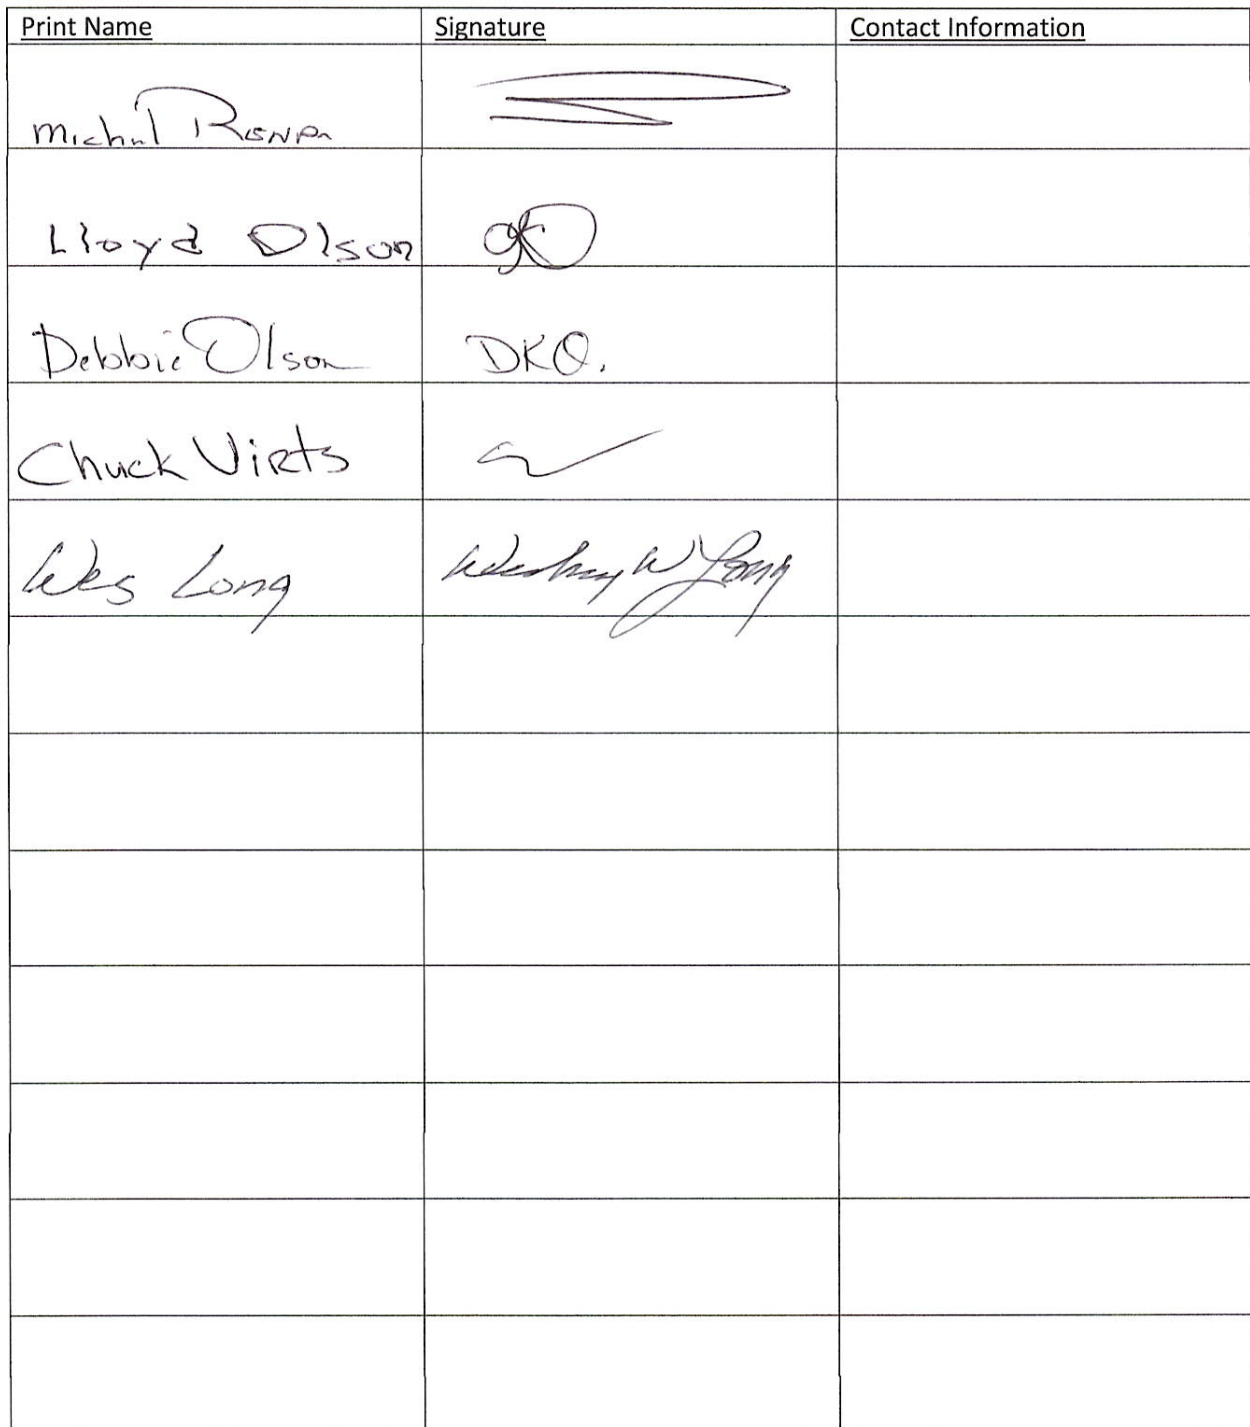 Print Name Signature Contact Information
Lloyd Olson
Debbie Olson DKO.
Chuck Virts
Wes Long Wesley W Long